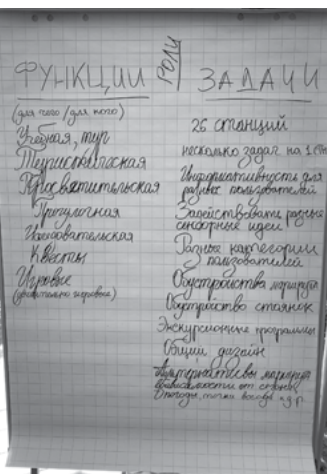 ФУНКЦИИ
(для чего / для кого)
Учебная, тур
Туристическая
Просветительская
Прогулочная
Исследовательская
Квесты
Игровые
РОЛИ
ЗАДАЧИ
26 станций
несколько задач на 1
Информативность для
разных пользователей
Задействовать разные
сенсорные идеи
Разные категории
пользователей
Обустройства маршрута
Обустройство стоянок
Экскурсионные программы
Общий дизайн
Альтернативы маршрута
в зависимости от сезона,
погоды, точки входа и др.